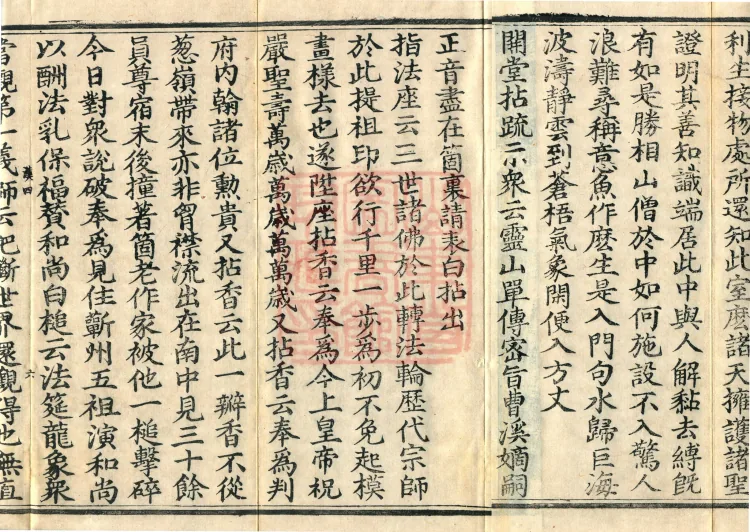 利生接物處所還知此室麽諸天擁護諸聖
證明其善知識端居此中與人解黏去縛旣
有如是勝相山僧於中如何施設不入驚人
浪難尋稱意魚作麽生是入門句水歸巨海
波濤靜雲到蒼梧氣象閑便入方丈
開堂拈䟽示衆云靈山單傳密旨曹溪嫡嗣
正音盡在箇裏請表白拈出
指法座云三世諸佛於此轉法輪歷代宗師
於此提祖印欲行千里一步爲初不免起模
畫樣去也遂陞座拈香云奉爲今上皇帝祝
嚴聖壽萬歲萬歲萬萬歲又拈香云奉爲判
府內翰諸位勳貴又拈香云此一瓣香不從
葱嶺帶來亦非胷襟流出在南中見三十餘
員尊宿末後撞著箇老作家被他一槌擊碎
今日對衆說破奉爲見住蘄州五祖演和尚
以酬法乳保福贊和尚白槌云法筵龍象衆
四 六
當觀第一義師云把斷世界還觀得也無直